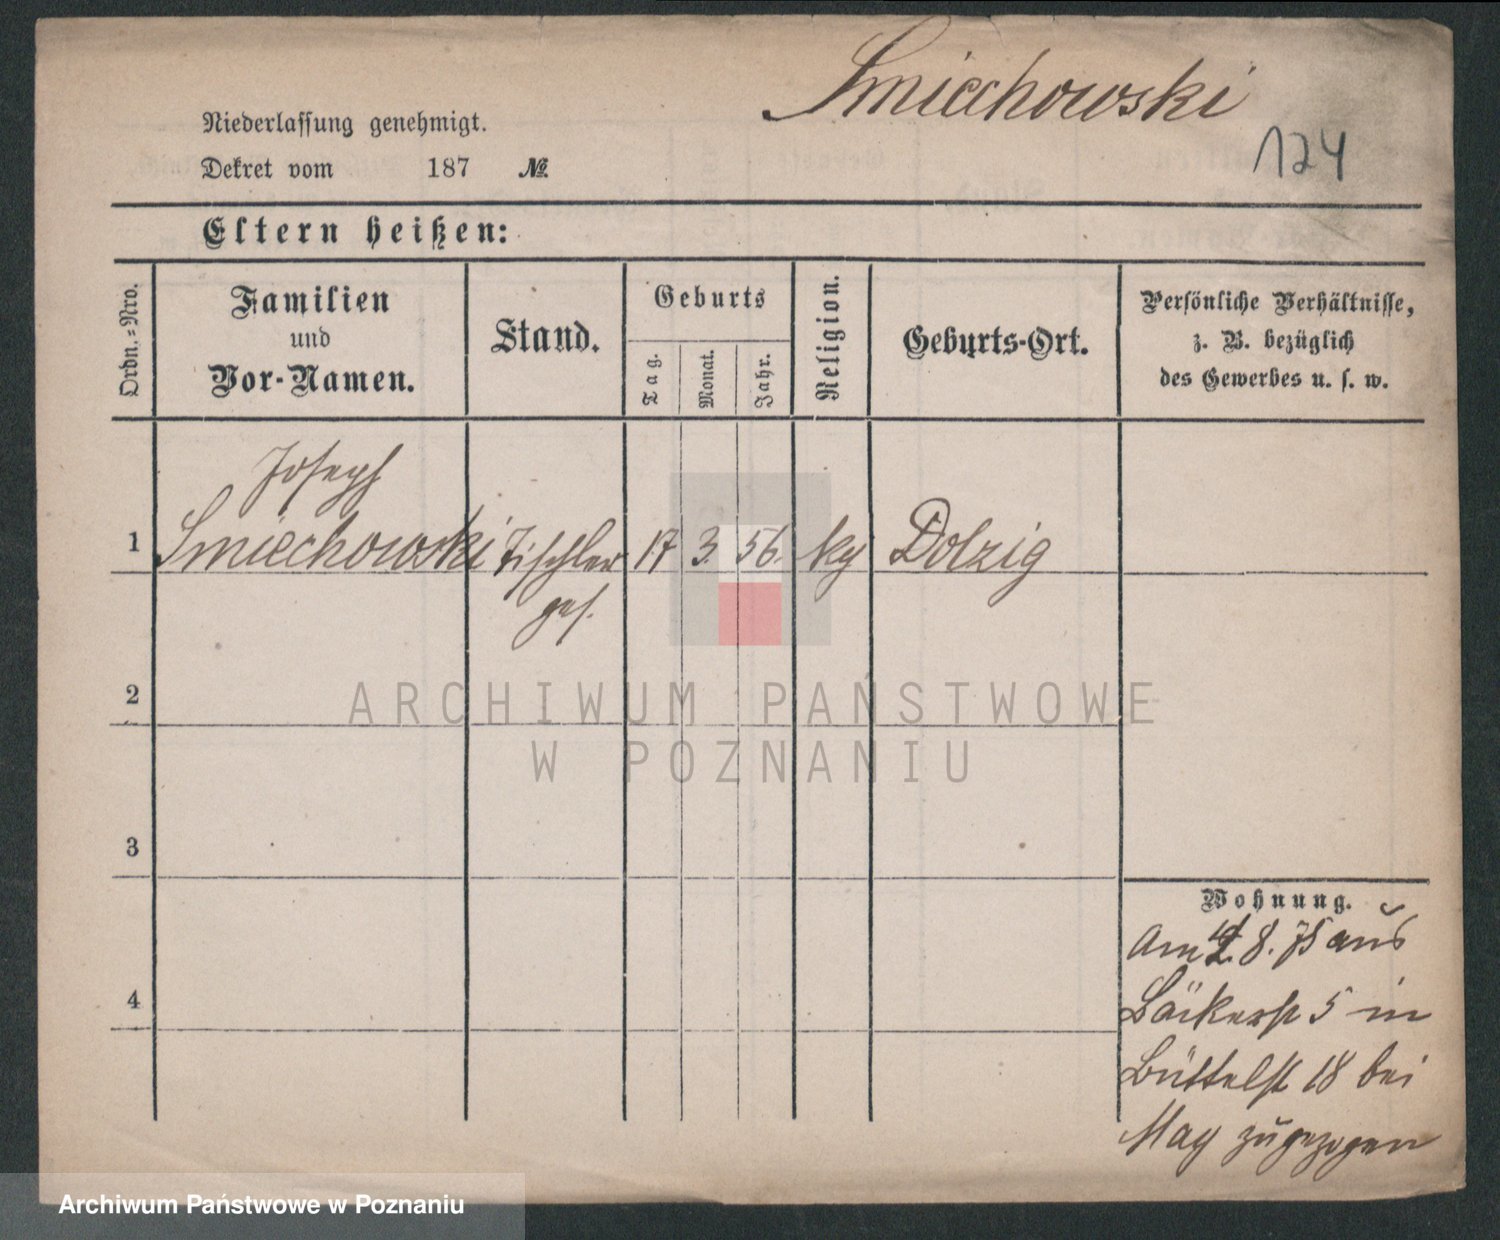 Smiechowski
124
Niederlassung genehmigt.
Dekret vom 187 №
Eltern heißen:
Ordn.-Nro.
Familien
und
Vor-Namen.
Stand.
Geburts
Tag.
Monat.
Jahr.
Religion.
Geburts-Ort.
Persönliche Verhältnisse,
z. B. bezüglich
des Gewerbes u. s. w.
Joseph
1 Smiechowski Tischler 17 3. 56. kg Dolzig
ges.
2
3
4
Wohnung.
Am 8. 75 aus
Bäckerst 5 in
Büttelst 18 bei
May zugezogen
ARCHIWUM PAŃSTWOWE
W POZNANIU
Archiwum Państwowe w Poznaniu